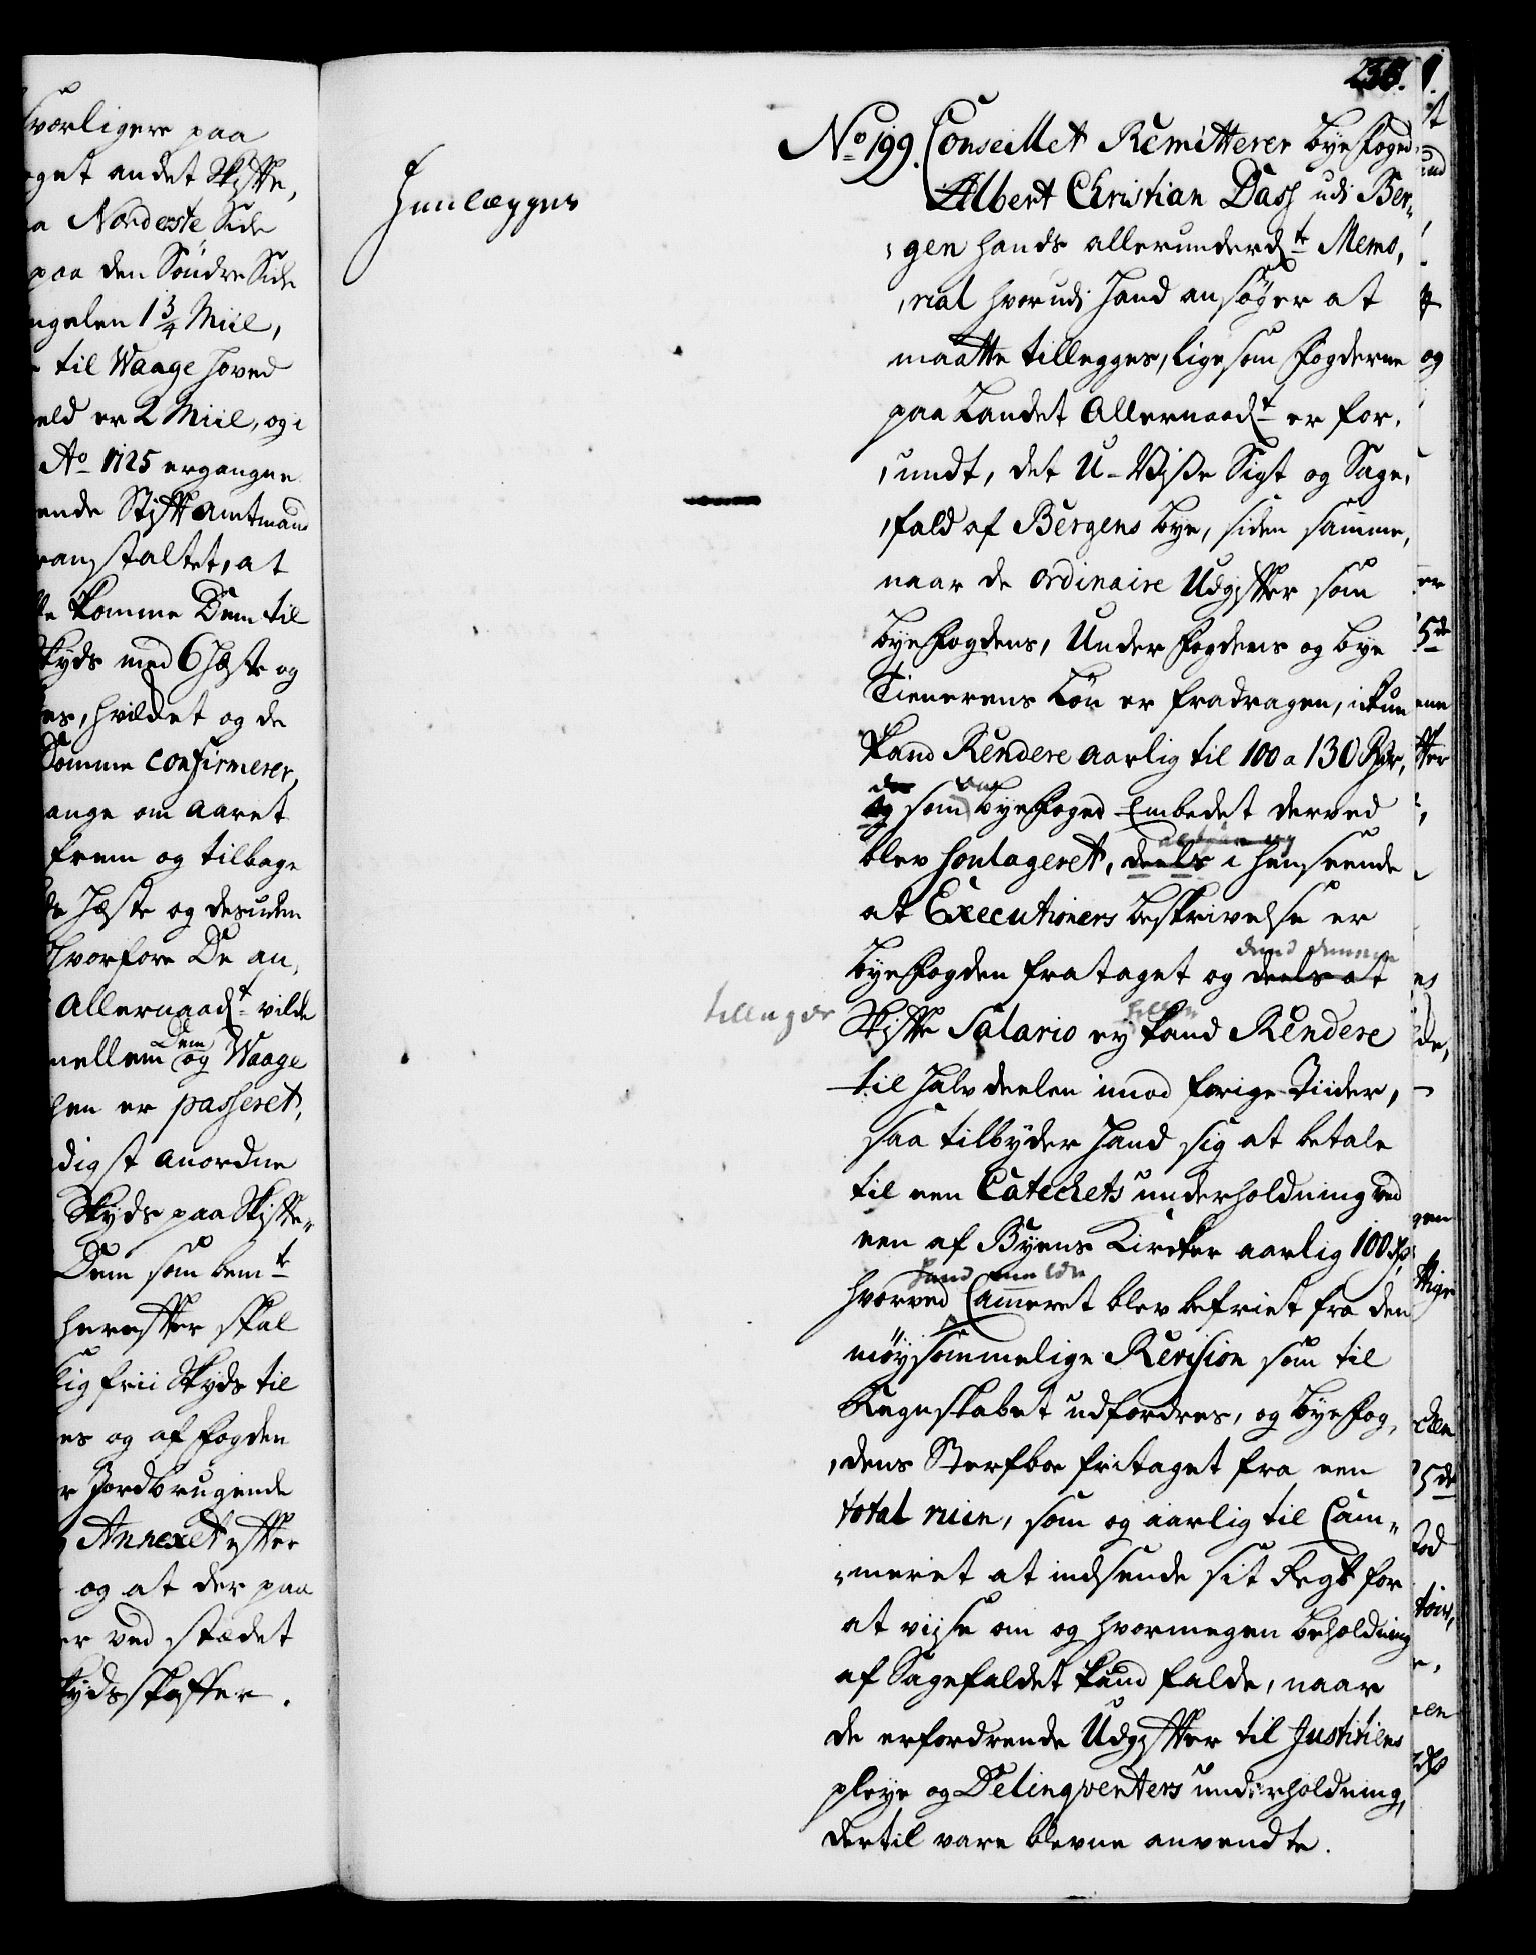 sværligere paa
get andet Skifte,
a Norderste Side
paa den Søndre Side
ngelen 1 3/4 Miil,
til Waage hoved
eld er 2 Miil, og i
Ao 1725 ergangne
ende Stiftamtmand
ranstaltet, at
komme Dem til
Skyds med 6 Heste og
es, hvildet og de
Somme confirmerer,
ange om Aaret
frem og tilbage
Heste og desuden
hvorfore De an,
Allernaadt vilde
mellem Dem og Waage
hen er passeret,
digst anordne
Skyds paa Skifte,,
Dem som bemte
herefter skal
lig frii Skyds til
es og af fogden
Jordbrugende
Annexet efter
og at der paa
er ved stædet
Skydsskaffer.
238.
Henlægges
No 199. Conseillet Remitterer Byefoged
Albert Christian Dass udi Ber,,
,gen hands allerunderdte Memo,
,rial hvorudi Hand ansøger at
maatte tillegges, ligesom fogderne
paa Landet Allernaadt er for,
,undt, det U-Visse Sigt og Sage,
,fald af Bergens Bye, siden samme,
naar de ordinaire Udgifter som
Byefogdens, Underfogdens og Bye
Tienerens Løn er fradragen, ikun
kand Rendere aarlig til 100 a 130 Rdr,
og som Byefoged Embedet derved
blev soulageret, deels i henseende
at Executioners beskrivelse er
Byefogden frataget og deels at
tillægde
Skifte Salario ey heller kand Rendere
til halvdeelen imod forige Tiider,
saa tilbyder Hand sig at betale
til een Catechets underholdning ved
een af Byens Kircker aarlig 100 rdr,
hvorved Cammeret blev befriet fra den
møysommelige Revision som til
Regnskabet udfordres, og Byefog,
,dens Sterfboe fritaget fra een
total ruin, som og aarlig til Cam,,
,meret at indsende sit Regsk for
at viise om og hvormegen beholdning
af Sagefaldet kand falde, naar
de erfordrende Udgifter til Justitiens
pleye og Delinqventers underholdning,
dertil vare blevne anvendte.